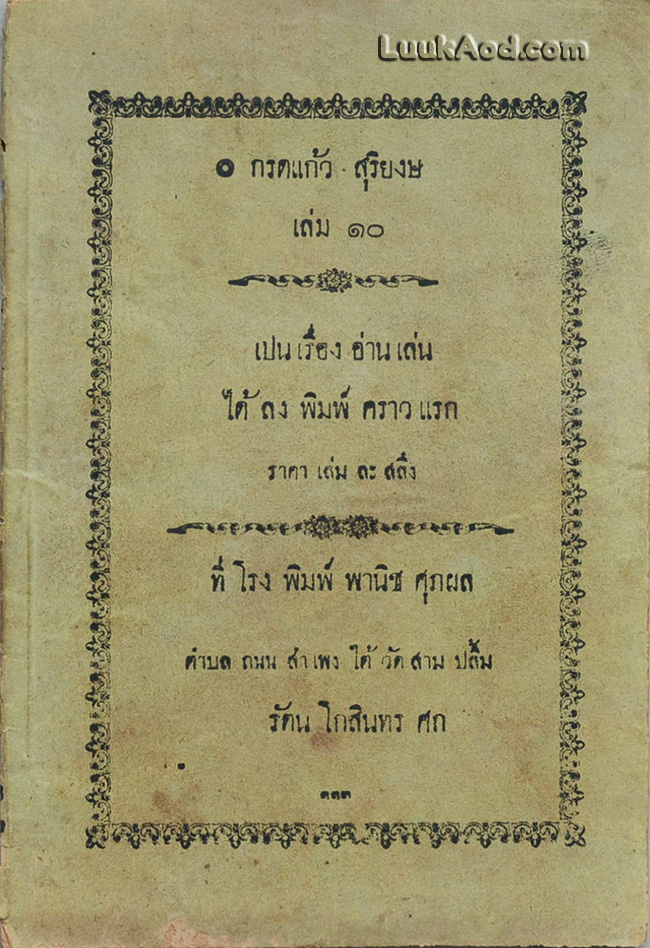 LuukAod.com
๏ กรดแก้ว สุริยงษ
เล่ม ๑๐
เปน เรื่อง อ่าน เล่น
ได้ ลง พิมพ์ คราว แรก
ราคา เล่ม ละ สลึง
ที่ โรง พิมพ์ พานิช ศุภผล
ตำบล ถนน สำเพง ใต้ วัด สาม ปลื้ม
รัตน โกสินทร ศก